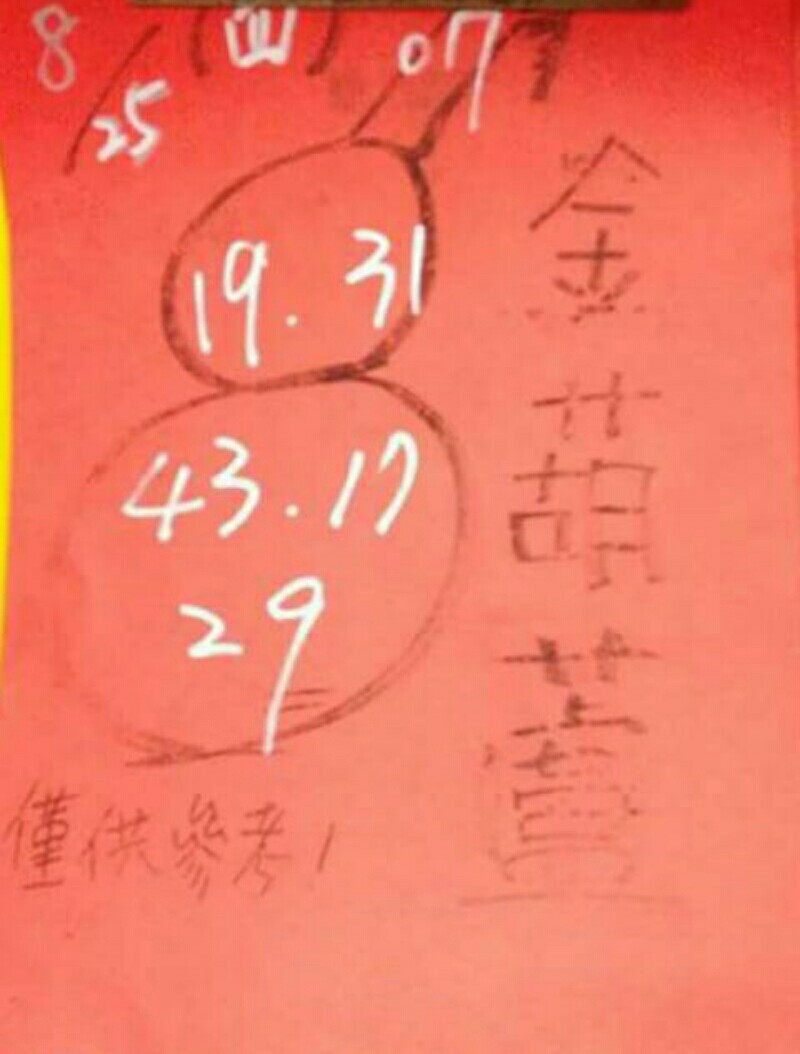 8/25 (四) 07
19. 31
43. 17
29
金葫蘆
僅供參考!